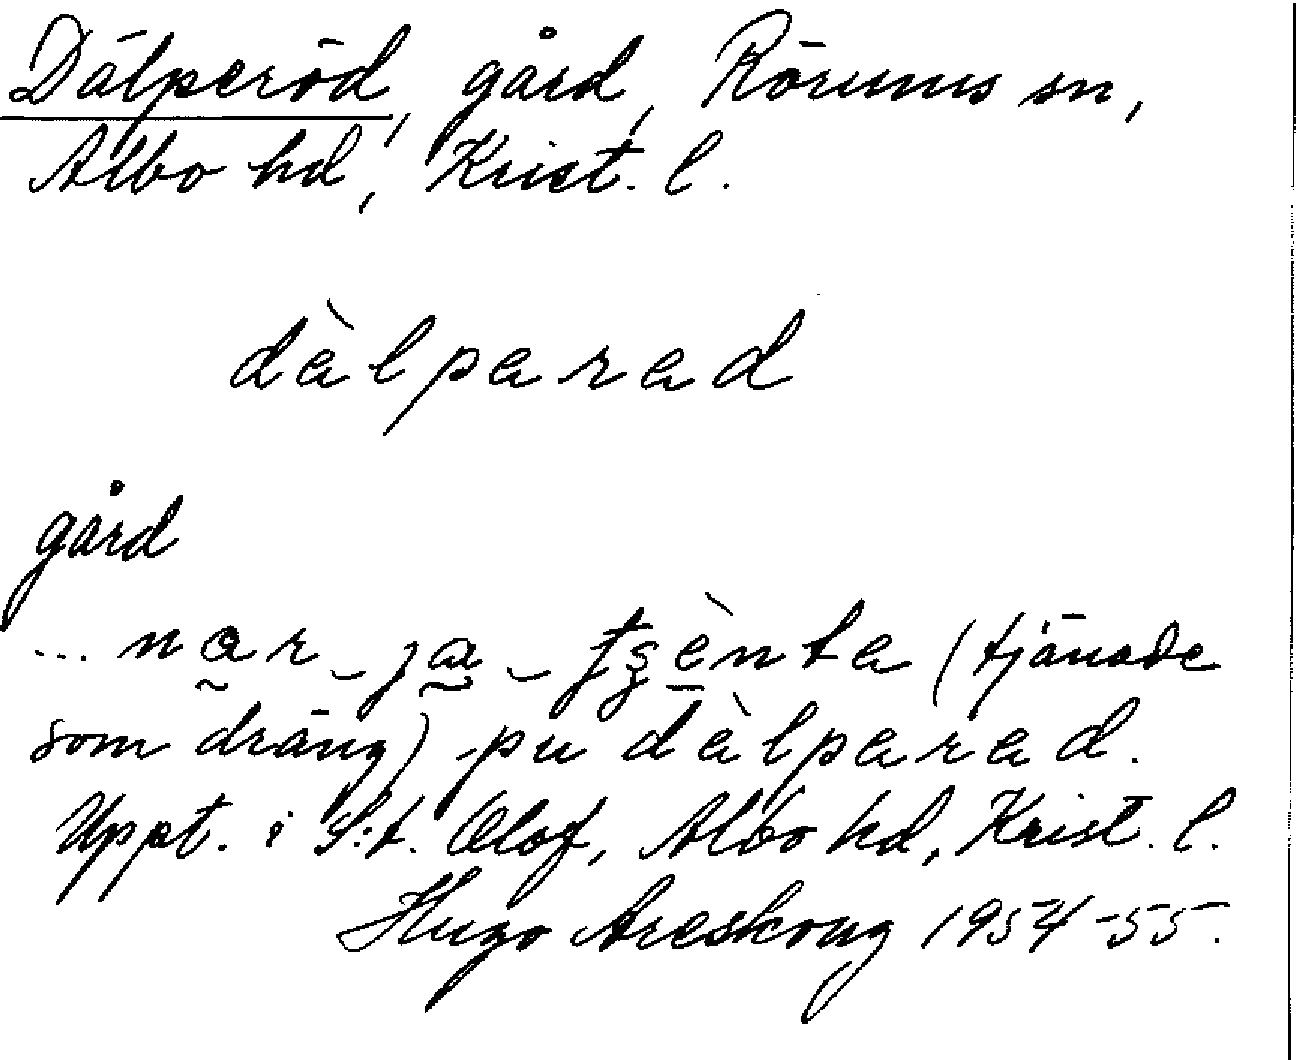 Dälperöd, gård, Rörums sn,
Albo hd, Krist. l.
dàlparad
gård
... nar ja tjènta (tjänade
som dräng) pu dàlparad.
Uppt. i S:t. Olof, Albo hd, Krist. l.
Hugo Areskoug 1954-55.